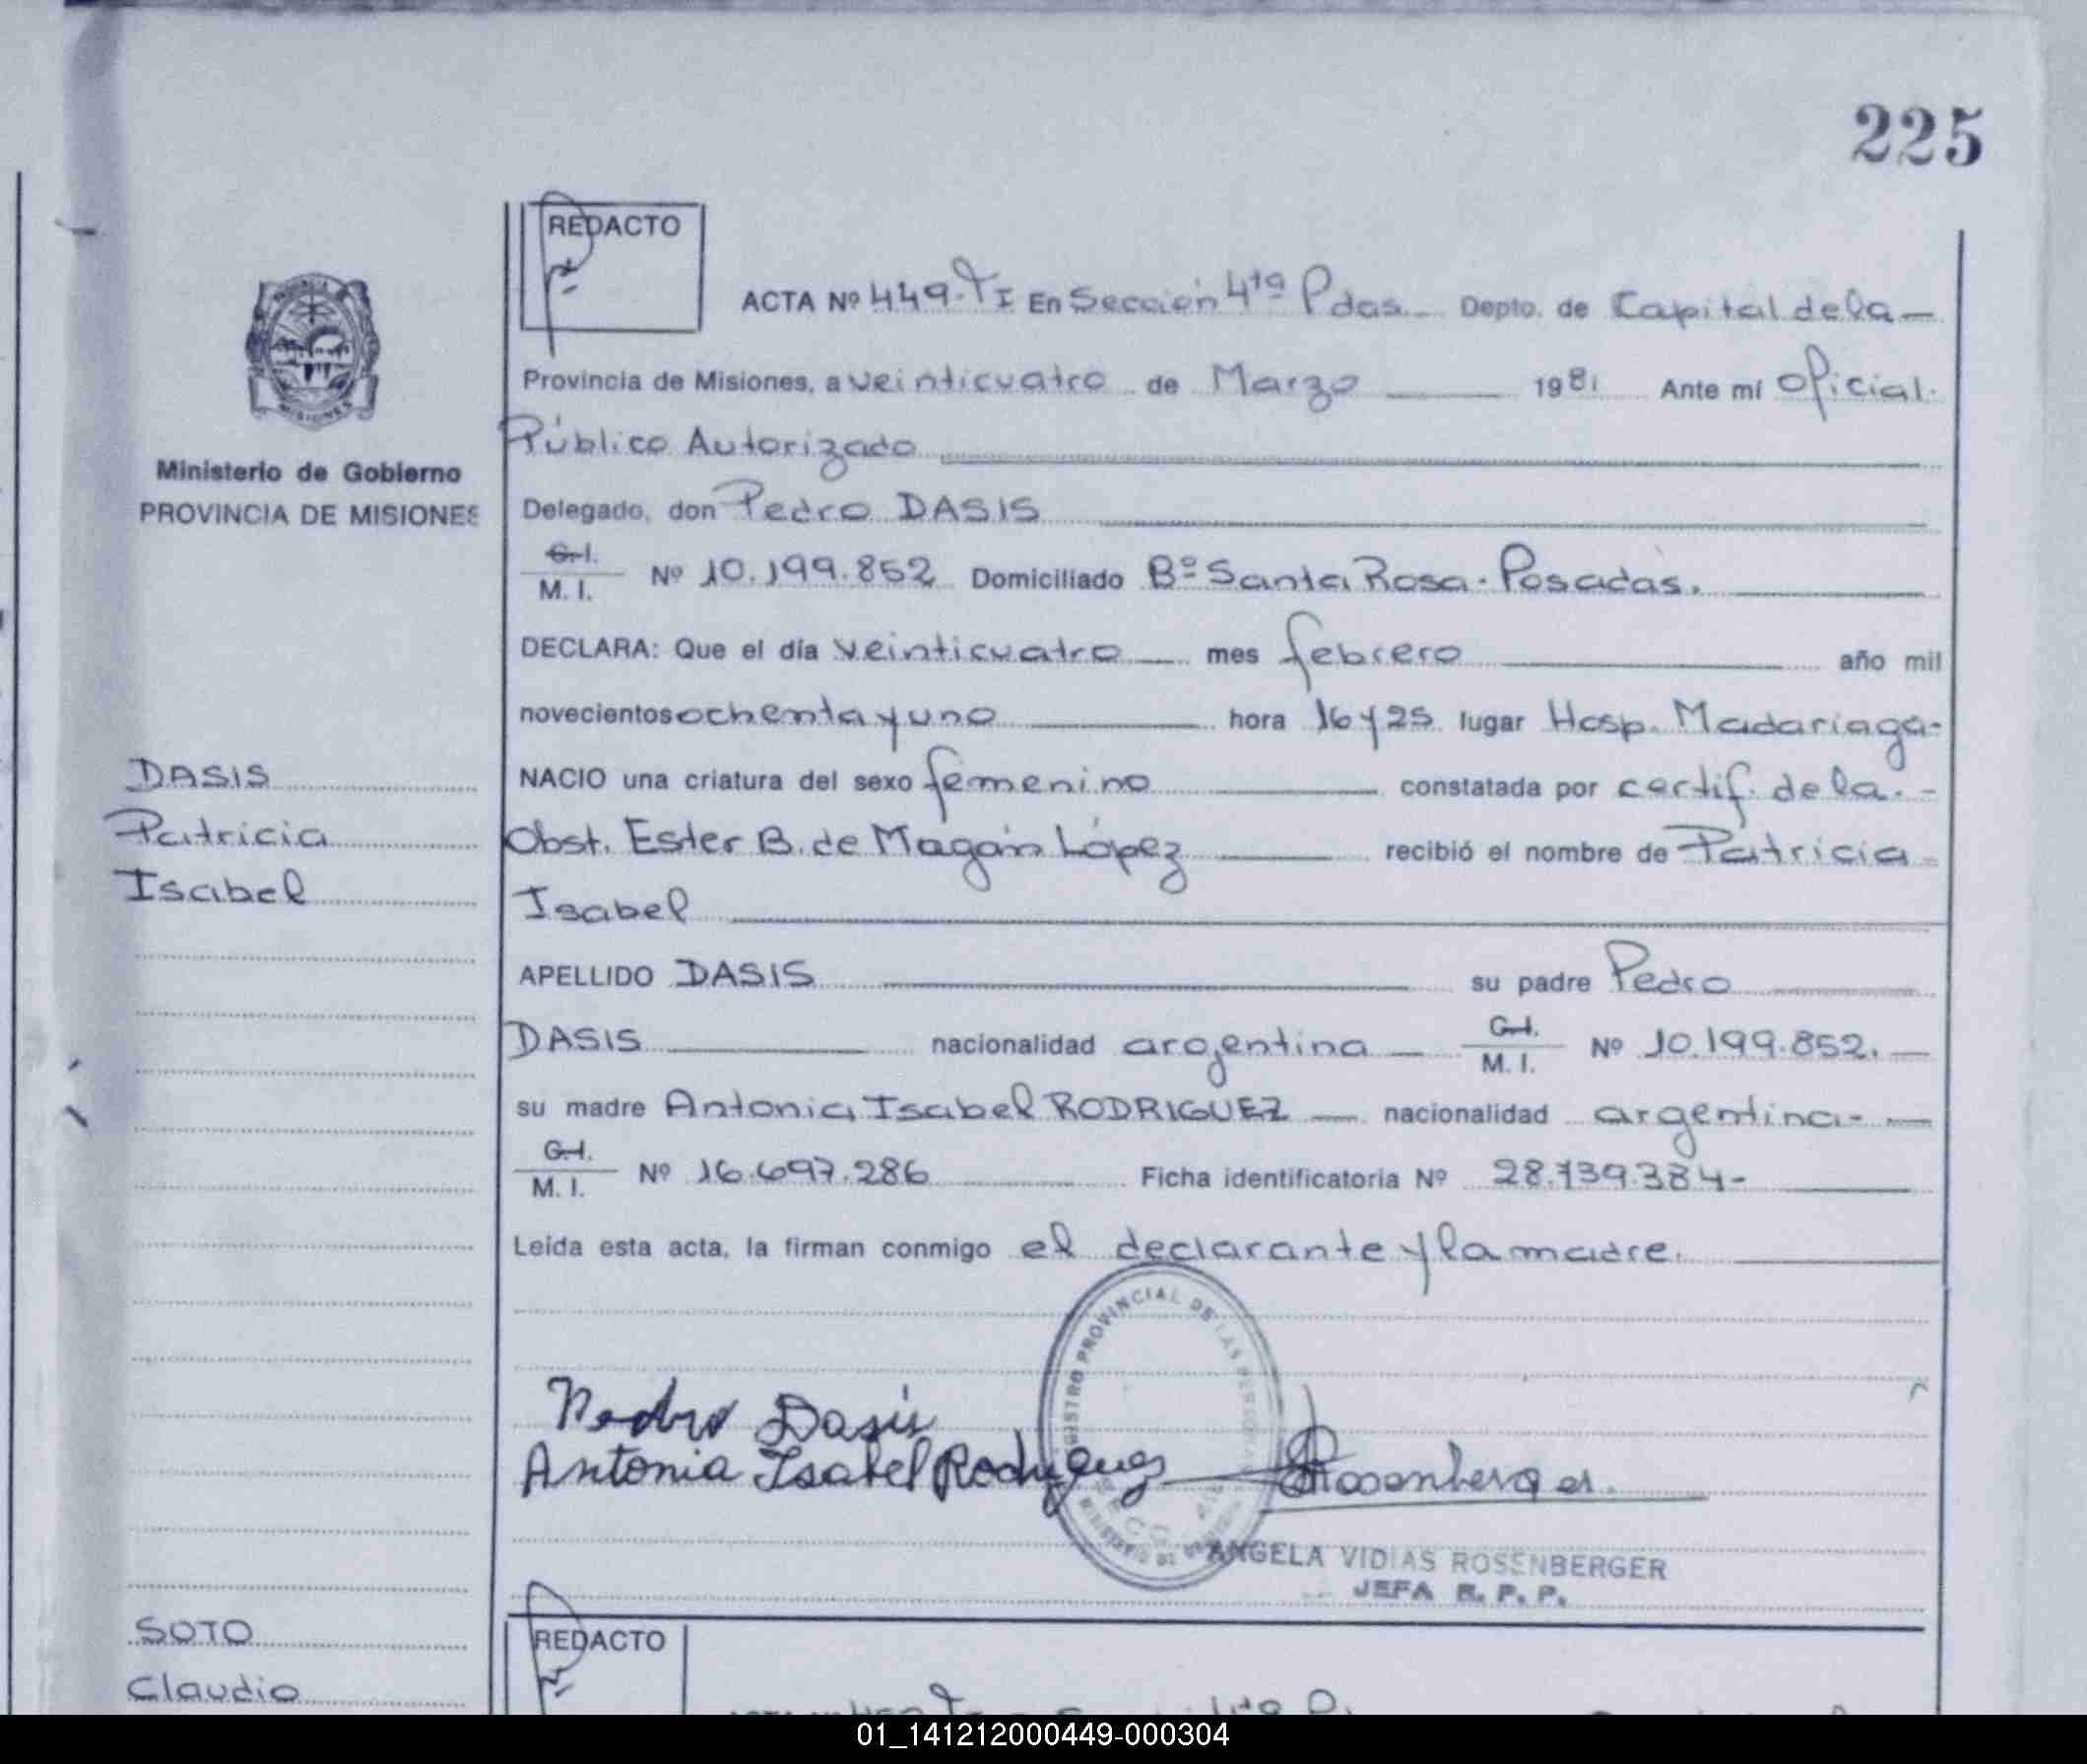 225
REDACTO
ACTA Nº 449. T I En Sección 4ta Pdas. Depto. de Capital de la
Provincia de Misiones, a veinticuatro de Marzo 1981 Ante mí Oficial.
Público Autorizado
Delegado, don Pedro DASIS
C.I.
M. I. Nº 10.199.852 Domiciliado Bº Santa Rosa. Posadas.
DECLARA: Que el día veinticuatro mes febrero año mil
novecientos ochenta y uno hora 16 y 25 lugar Hosp. Madariaga-
NACIO una criatura del sexo femenino constatada por certif. de la. -
Obst. Ester B. de Magán López recibió el nombre de Patricia
Isabel
APELLIDO DASIS su padre Pedro
DASIS nacionalidad argentina C.I.
M. I. Nº 10.199.852.
su madre Antonia Isabel RODRIGUEZ nacionalidad argentina-
C.I.
M. I. Nº 16.697.286 Ficha identificatoria Nº 28.739.384-
Leída esta acta, la firman conmigo el declarante y la madre.
Ministerio de Gobierno
PROVINCIA DE MISIONES
DASIS
Patricia
Isabel
Pedro Dasis
Antonia Isabel Rodriguez
Rosenberger
REGISTRO PROVINCIAL DE LAS PERSONAS
ANGELA VIDIAS ROSENBERGER
JEFA R. P. P.
SOTO
Claudio
REDACTO
01_141212000449-000304